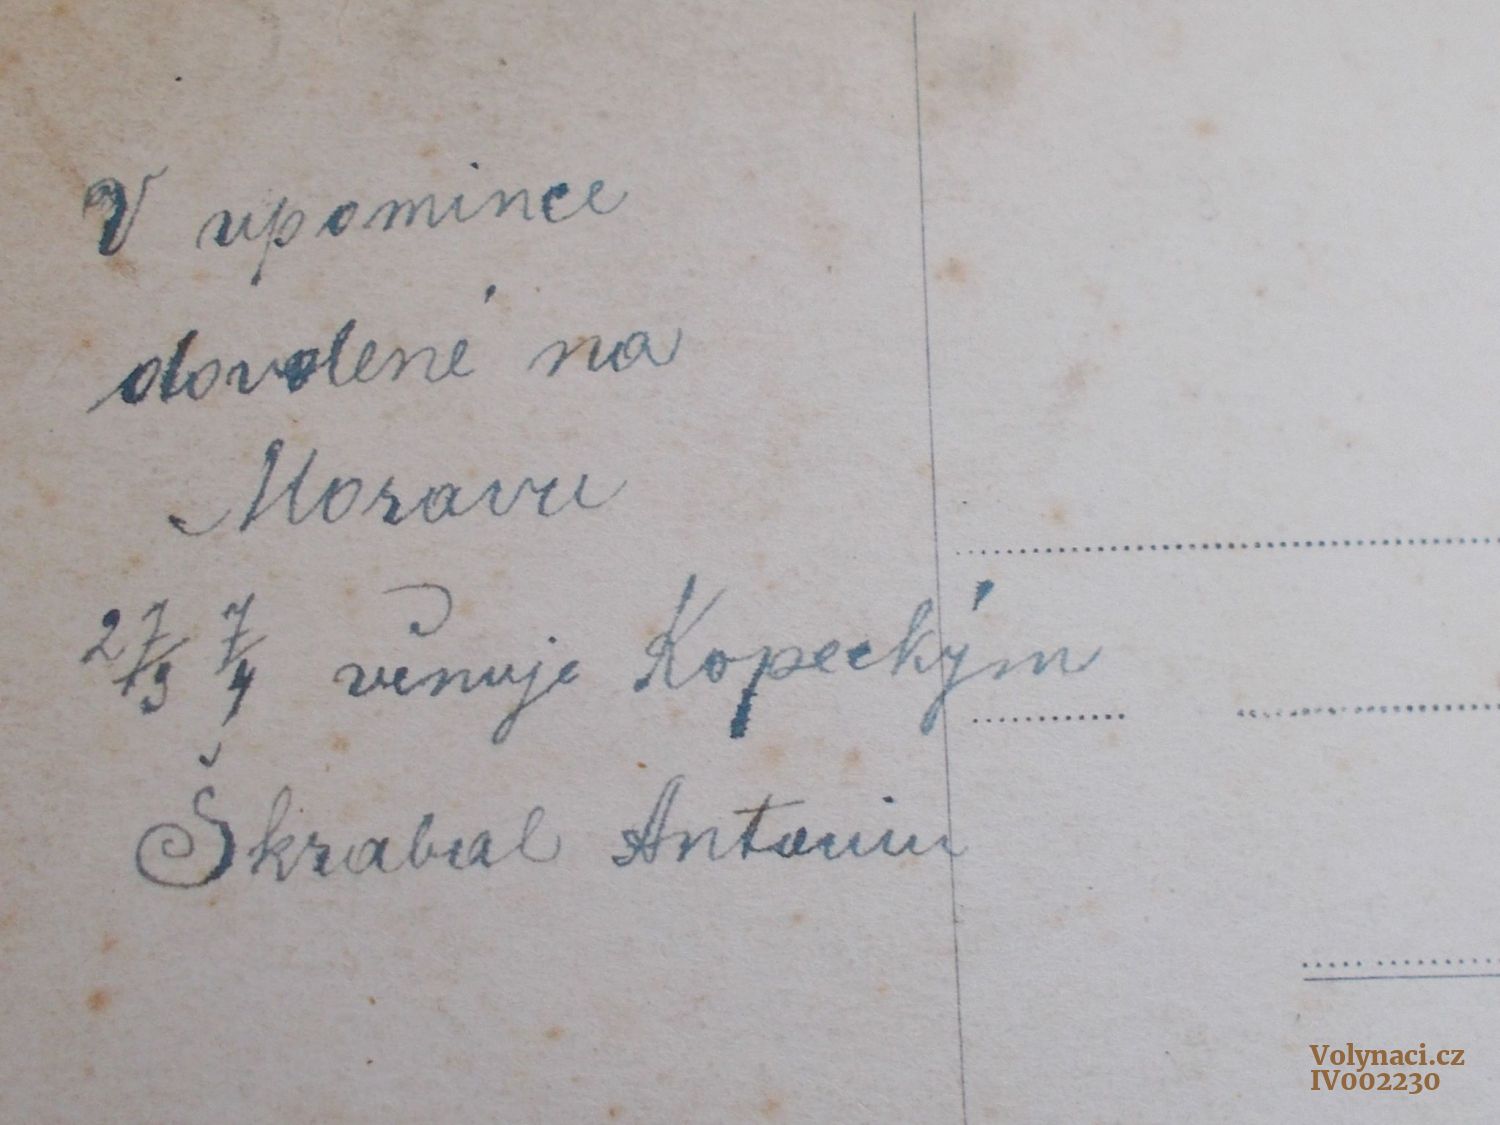 V upomince
dovolené na
Moravu
27/9 7/4 věnuje Kopeckým
Škrabal Antonin
Volynaci.cz
IV002230